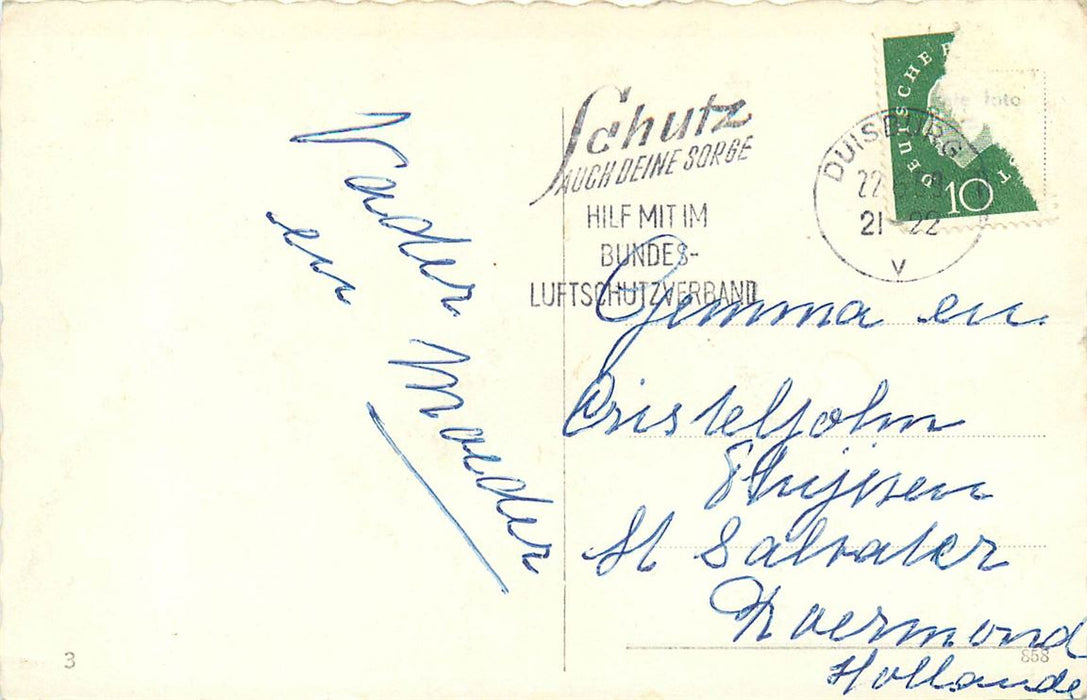 Vader
en
Moeder
Schutz
AUCH DEINE SORGE
HILF MIT IM
BUNDES-
LUFTSCHUTZVERBAND
DEUTSCHE
10
DUISBURG
22
21-22
V
Gemma en
Cristeljohn
Thijssen
St Salvator
Roermond
Hollande
3
858